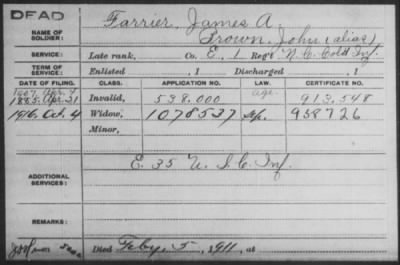 DEAD
Farrier, James A.
NAME OF SOLDIER: Brown, John (alias)
SERVICE: Late rank, Co. E, 1 Reg't N.C. Cold Inf.
TERM OF SERVICE: Enlisted , 1 Discharged , 1
DATE OF FILING. CLASS. APPLICATION NO. LAW. CERTIFICATE NO.
1907, Apr. 4 age.
1885, Apr. 21 Invalid, 538.000 913.548
1916, Oct. 4 Widow, 1078537 938726
Minor,
E. 35 U. S. C. Inf.
ADDITIONAL SERVICES:
REMARKS:
Died Feby. 5, 1911, at